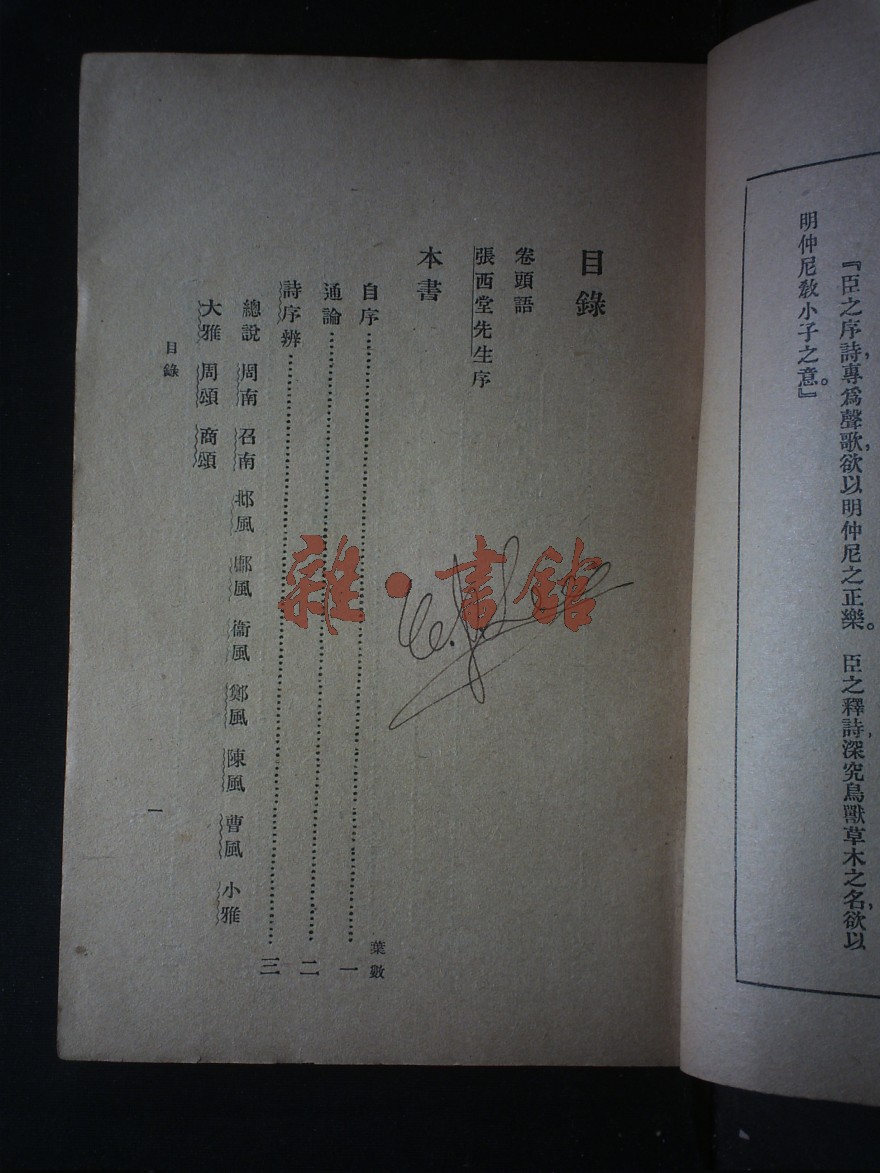 『臣之序詩，專爲聲歌，欲以明仲尼之正樂。　臣之釋詩，深究鳥獸草木之名，欲以
明仲尼敎小子之意。』
目錄
卷頭語
張西堂先生序
本書
葉數
自序……一
通論……二
詩序辨……三
總說　周南　召南　邶風　鄘風　衞風　鄭風　陳風　曹風　小雅
大雅　周頌　商頌
目錄
一
雜·書館